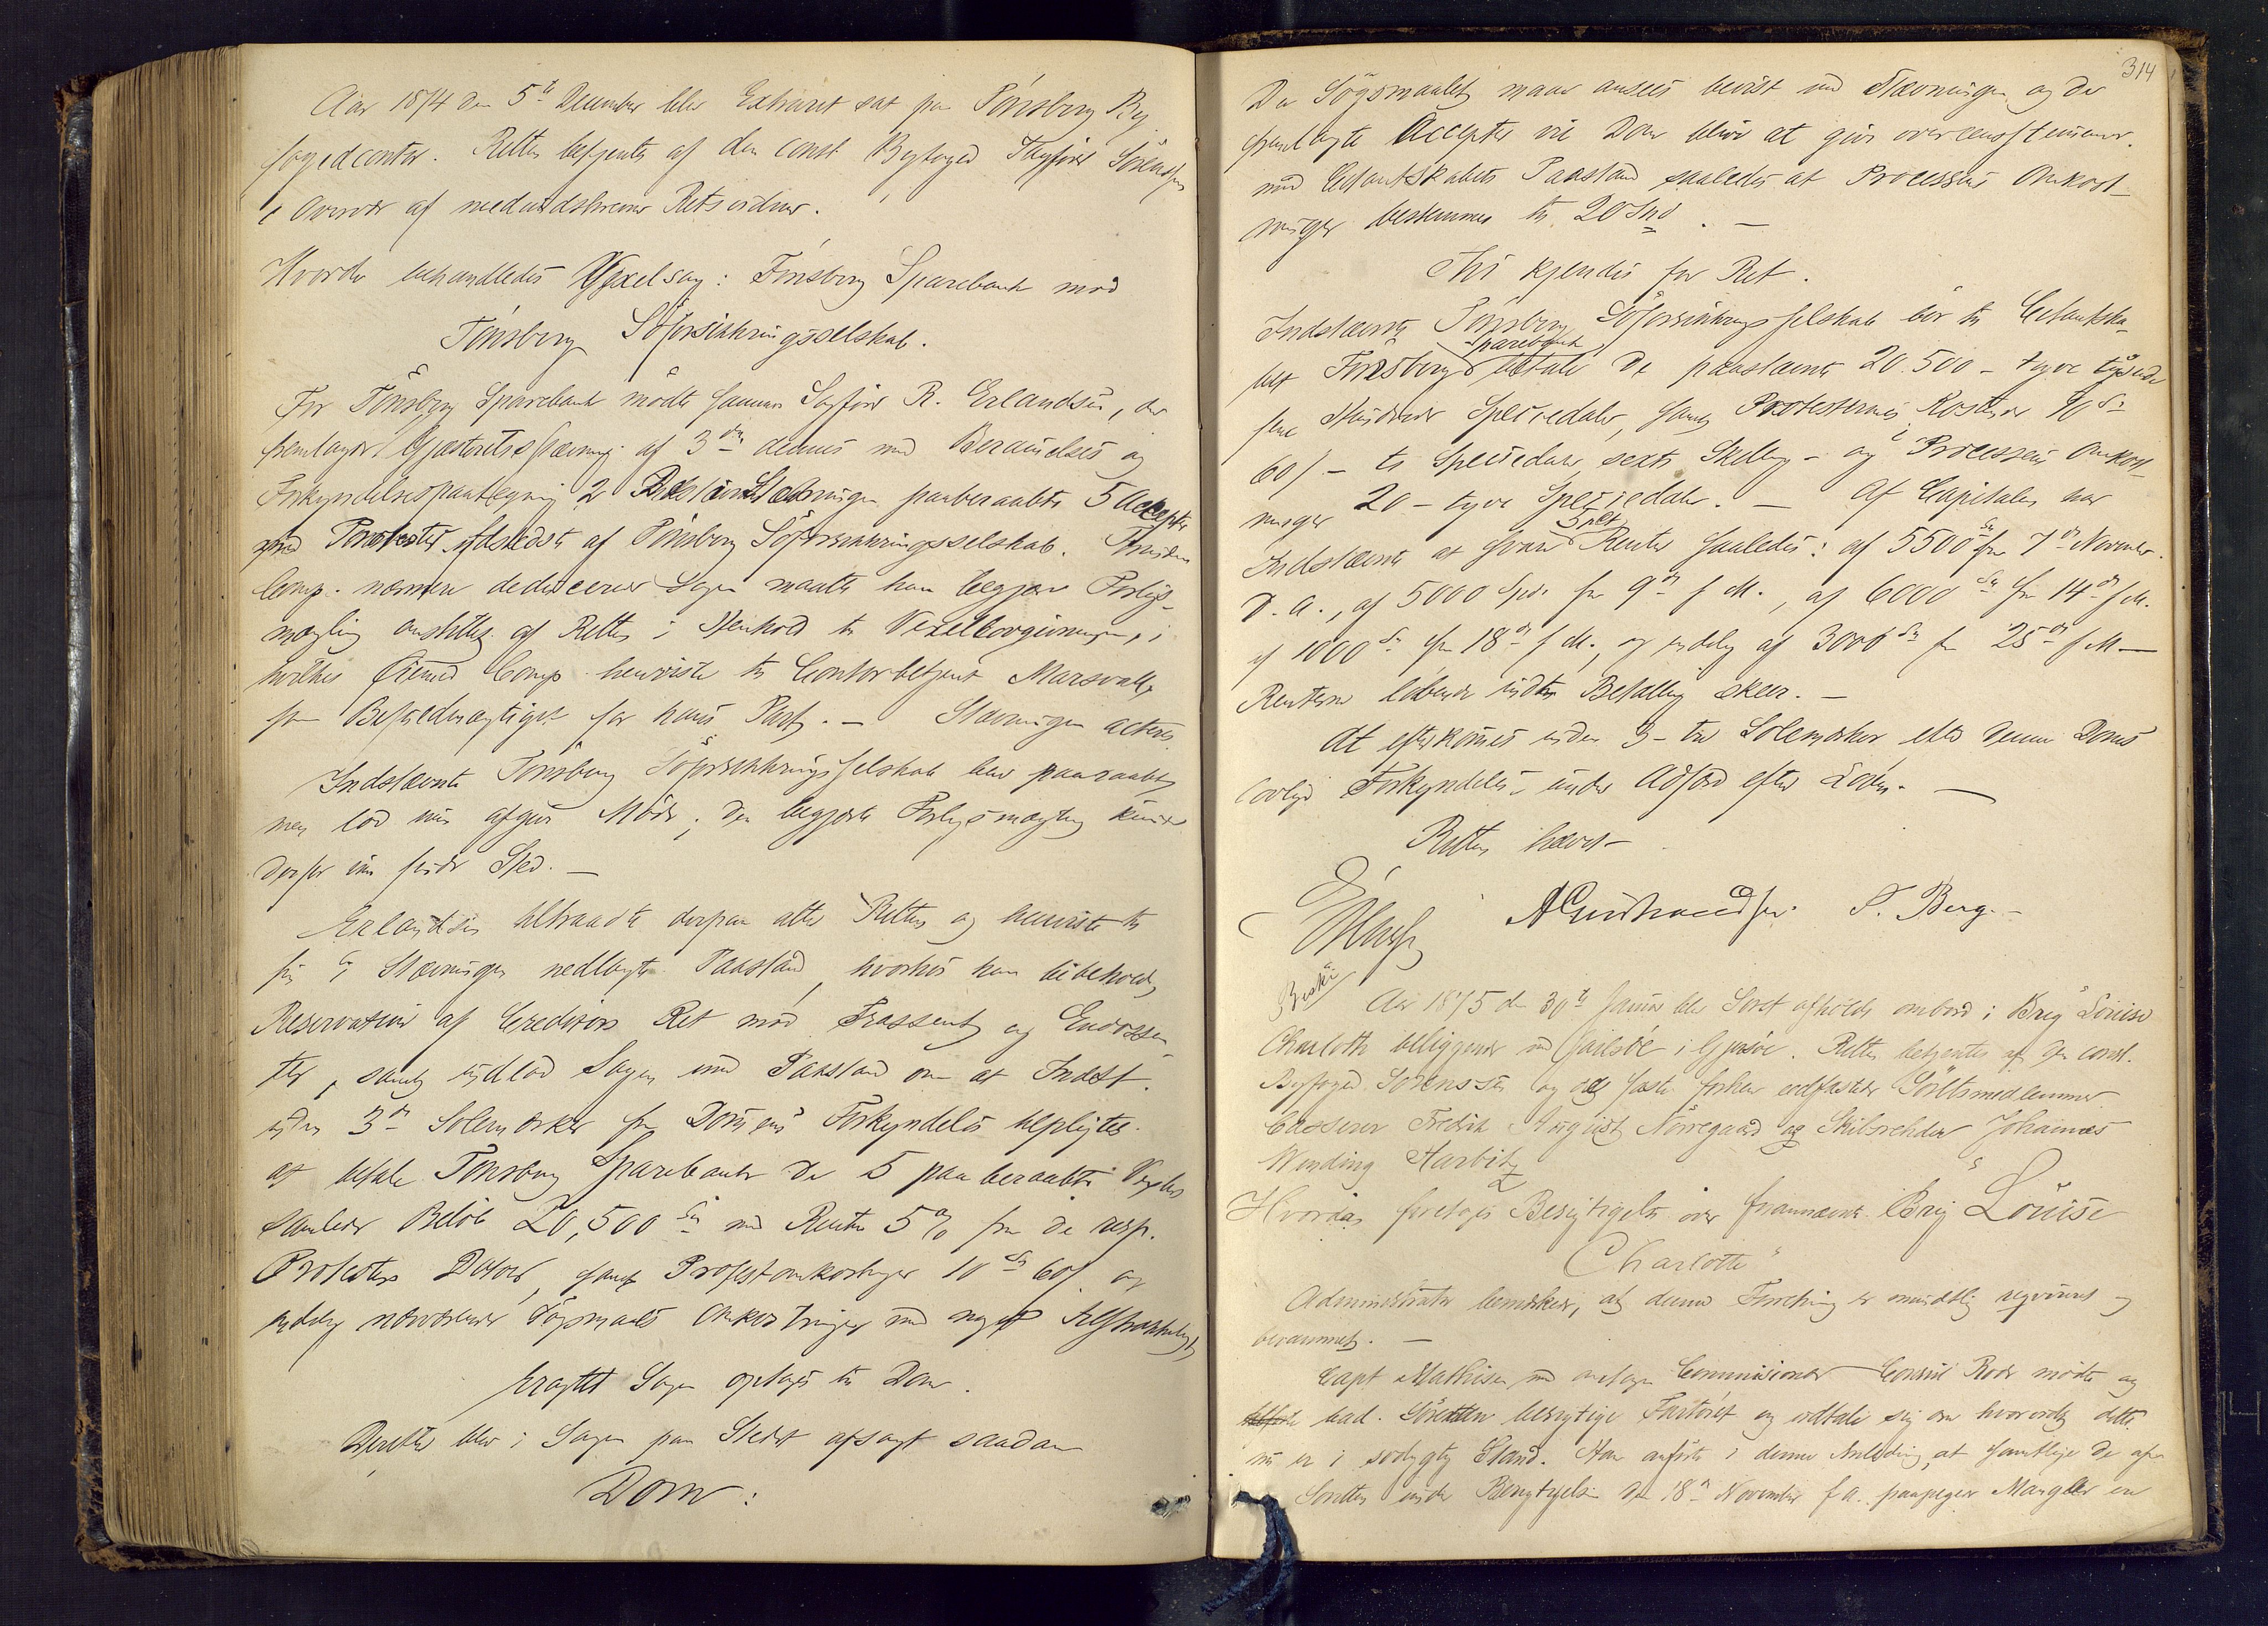 Aar 1874 den 5te December blev Extraret sat paa Tönsberg By
fogedcontor. Retten betjentes af den const Byfoged Sörensen
i Overvær af medundskrevne Retsvidner.
Hvorda behandledes Vexelsag: Tönsberg Sparebank mod
Tönsberg Söforsikkringsselskab.
For Tönsberg Sparebank mödte Sagförer R. Erlandsen, der
fremlagde Gjæsteretsstævning af 3die dennes med Berammelses og
Forkyndelsespaategning 2 Stævningen paaberaabte 5 Accepter
med Protester udstedte af Tönsberg Söforsikkringsselskab. Forinden
Comp. nærmere deducerer Sagen maatte han begjære Forligs-
mægling anstillet af Retten i Henhold til Vexellovgivningen, i
hvilket Öiemed Comp henviste til Contorbetjent
som Befuldmægtiget for hans Part. – Stævningen acteres
Indstævnte Tönsberg Söforsikkringsselskab blev paaraabt
men lod ei afgive Möde; den begjærte Forligsmægling kunde
derfor ei finde Sted. –
Erlandsen tiltraadte derpaa atter Retten og henviste til
sin i Stævningen nedlagte Paastand, hvorhos han bibeholdt
Reservation af Creditors Ret mod Trassent og Endossen-
ter, samt indlod Sagen med Paastand om at Indst.
inden 3de Solemærker fra Dommens Forkyndelse tilpligtes
at betale Tönsberg Sparebank de 5 paaberaabte Vexlers
samlede Belöb 20,500 Spd med Renter 5% fra de resp.
Protesters Datoer, samt Protestomkostninger 10 Spd 60 s. og
endelig nærværende Sögsmaals Omkostninger med noget Tilstrækkeligt
Eragtet Sagen optages til Dom.
Derefter blev i Sagen paa Stedet afsagt saadan
Dom:
314
Da Sögsmaalet maa ansees bevist ved Stævningen og de
fremlagte Accepter vil Dom blive at give overeensstemmende
med Citantskabets Paastand saaledes at Processens Omkost-
ninger bestemmes til 20 Spd. –
Thi kjendes for Ret.
Indstævnte Tönsberg Söforsikringsselskab bör til Citantska-
Sparebank
bet Tönsberg betale de paastævnte 20.500 – tyve tusinde
fem Hundrede Speciedaler, samt Protesternes Kostende 10 Spd
60 s – ti Speciedaler sexti Skilling – og i Processens Omkost-
ninger 20 – tyve Speciedaler. – Af Capitalen har
5 pCt
Indstævnte at svare Renter saaledes: af 5500 Spd fra 7de November
d. A., af 5000 Spd. fra 9de s. M., af 6000 Spd fra 14de s. M.
af 1000 Spd fra 18de s. M., og endelig af 3000 Spd fra 25de s. M –
Renterne löbende indtil Betaling skeer. –
At efterkommes inden 3 – tre Solemærker efter denne Doms
lovlige Forkyndelse under Adfærd efter Loven. –
Retten hævet –
A Gulbrandsen. P. Berg. –
Aar 1875 den 30te Januar blev Söret afholdt ombord i Brig Louise
Charlotte beliggende ved i . Retten betjentes af den const.
Byfoged Sörenssen og de faste forhen edfæstede Söretsmedlemmer
Casserer Fredrik August Nörregaard og Skibsrehder Johannes
Wending Harbitz
Hvorda foretoges Besigtigelse over fornævnte Brig "Louise
Charlotte"
Administrator bemærkede, at denne Forretning er mundtlig reqvireret og
berammet. –
Capt Mathisen med antagen Commisionær Consul Rode mödte og
bad Söretten besigtige Fartöiet og udtale sig om hvorvidt dette
nu er i södygtig Stand. Han anförte i denne Anledning, at samtlige de af
Söretten under Besigtigelsen den 18de November f. A. paapegede Mangler er